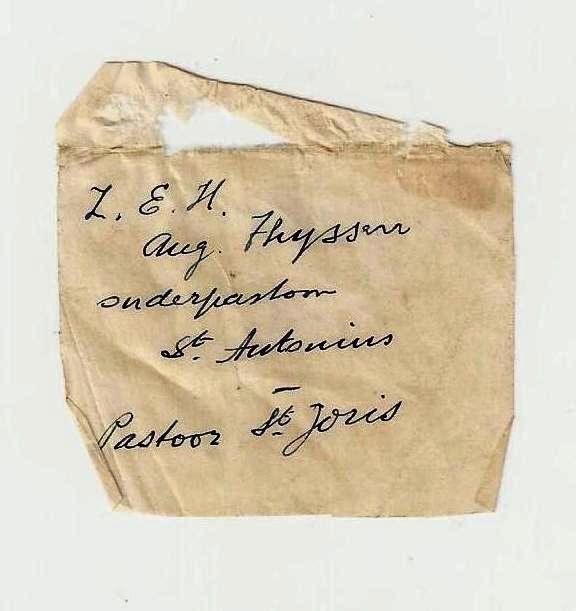 Z. E. H.
Aug. Thyssen
onderpastoor
St. Antonius
-
Pastoor St. Joris